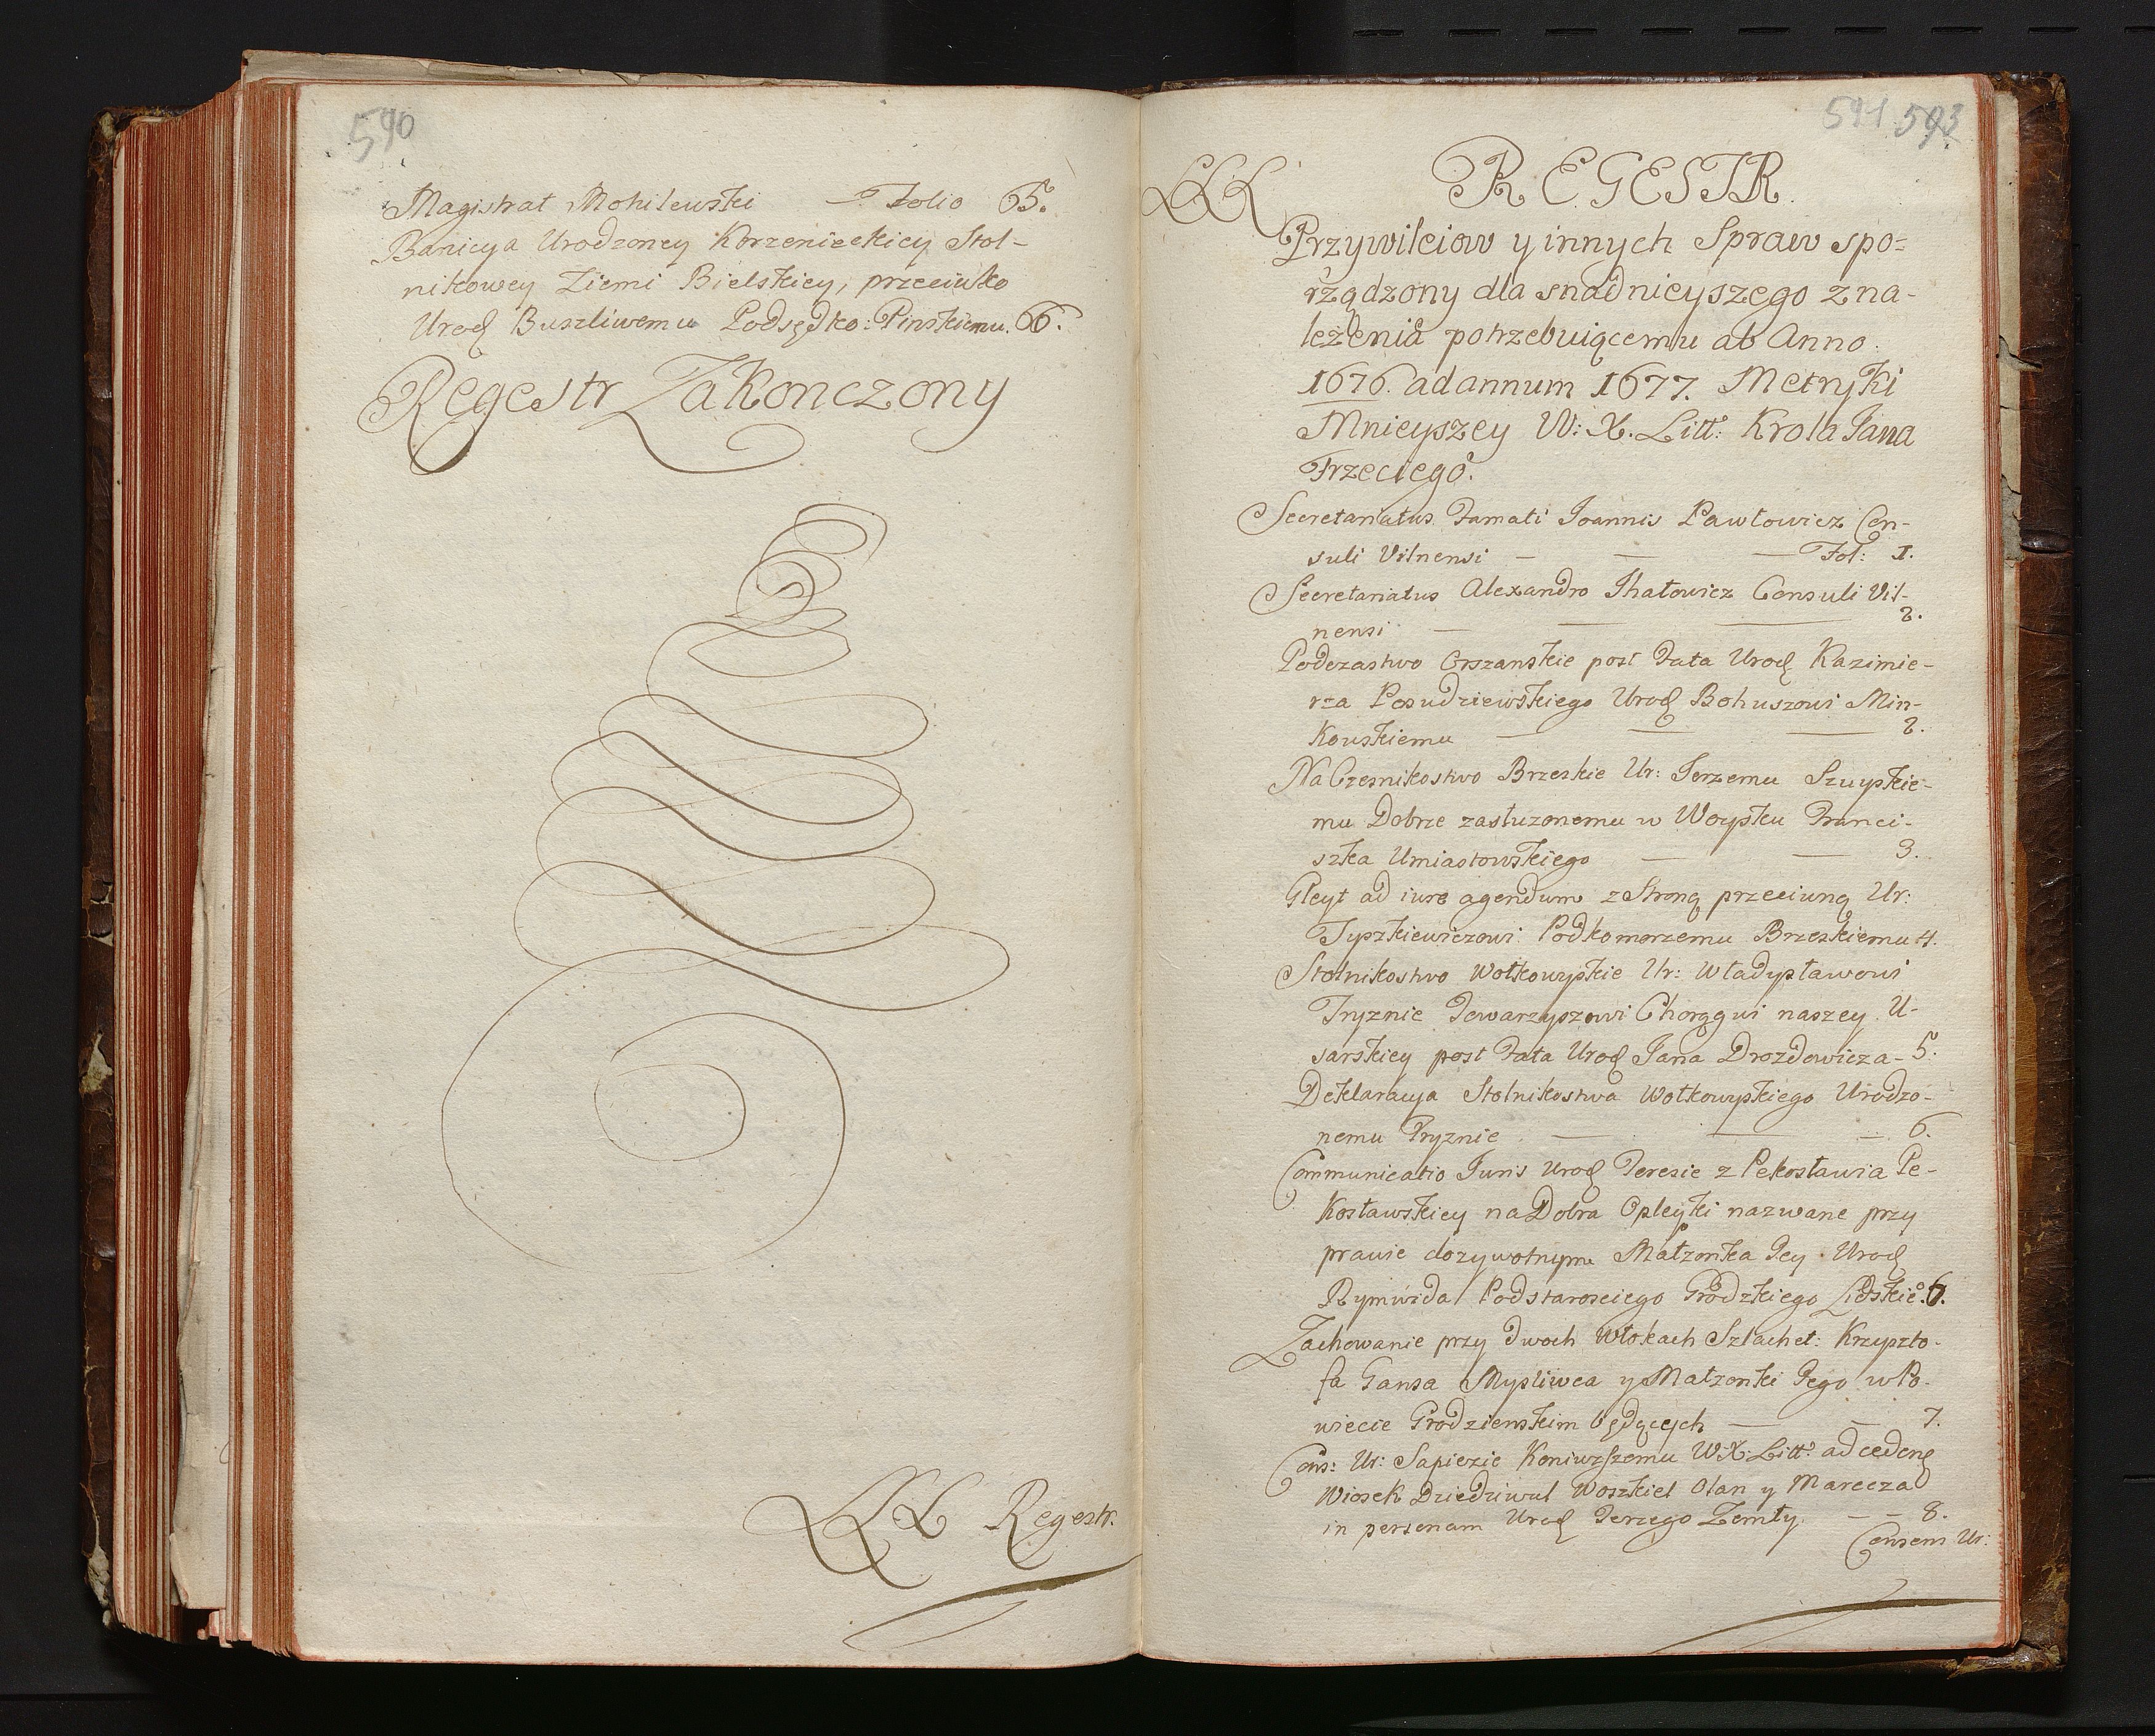 590
Magistrat Mohilewski — Folio 65.
Banicya Urodzoney Korzenieckiey Stol-
nikowey Ziemi Bielskiey, przeciwko
Urod Buszliwemu Podsędko: Pinskiemu. 66.
Regestr Zakonczony
LLL Regestr.
591 593
LLL REGESTR.
Przywileiow y innych Spraw spo=
rządzony dla snadnieyszego zna-
leżenia potrzebuiącemu ab Anno
1676. ad annum 1677. Metryki
Mnieyszey W: X. Litt: Krola Jana
Trzeciego.
Secretariatus Famati Joannis Pawłowicz Con-
suli Vilnensi — — — Fol: 1.
Secretariatus Alexandro Ihatowicz Consuli Vil-
nensi — — — 2.
Podczastwo Orszanskie post Fata Urod Kazimie-
rza Posudziewskiego Urod Bohuszowi Min-
kouskiemu — — — 2.
Na Czesnikostwo Brzeskie Ur: Jerzemu Szuyskie-
mu Dobrze zasłuzonemu w Woysku Franci-
szka Umiastowskiego — — 3.
Gleyt ad iure agendum z Stroną przeciwną Ur:
Tyszkiewiczowi Podkomorzemu Brzeskiemu 4.
Stolnikostwo Wołkowyskie Ur: Władysławowi
Tryznie Towarzyszowi Chorągwi naszey U-
sarskiey post Fata Urod Jana Drozdowicza - 5.
Deklaracya Stolnikostwa Wołkowyskiego Urodzo-
nemu Tryznie — — — 6.
Communicatio Juris Urod Teresie z Pekosławia Pe-
kosławskiey na Dobra Opleyki nazwane przy
prawie dozywotnym Małzonka Jey Urod
Rymwida Podstarosciego Grodzkiego Lidskie°. 6.
Zachowanie przy dwoch Włokach Szlachet: Krzyszto-
fa Gansa Mysliwca y Małzonki Jego w Po-
wiecie Grodzienskim będących — — 7.
Cons: Ur: Sapiezie Koniuszemu W.X. Litt: ad cedend
Wiosek Dziedziwul Woszkiel Olan y Marecza
in personam Urod Jerzego Zemły — — 8.
Consens Ur: